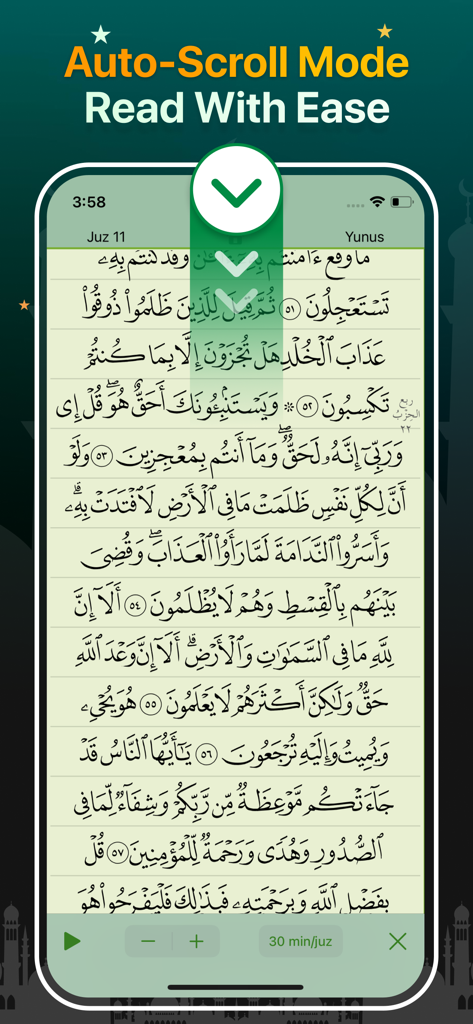 Auto-Scroll Mode
Read With Ease
3:58
Juz 11
Yunus
وَقَدْ كُنتُم بِهِۦ
تَسْتَعْجِلُونَ ٥١ ثُمَّ قِيلَ لِلَّذِينَ ظَلَمُوا۟ ذُوقُوا۟
عَذَابَ ٱلْخُلْدِ هَلْ تُجْزَوْنَ إِلَّا بِمَا كُنتُمْ
تَكْسِبُونَ ٥٢ ۞ وَيَسْتَنۢبِـُٔونَكَ أَحَقٌّ هُوَ ۖ قُلْ إِى
ربع
الحزب
٢٢
وَرَبِّىٓ إِنَّهُۥ لَحَقٌّ ۖ وَمَآ أَنتُم بِمُعْجِزِينَ ٥٣ وَلَوْ
أَنَّ لِكُلِّ نَفْسٍ ظَلَمَتْ مَا فِى ٱلْأَرْضِ لَٱفْتَدَتْ بِهِۦ ۗ
وَأَسَرُّوا۟ ٱلنَّدَامَةَ لَمَّا رَأَوُا۟ ٱلْعَذَابَ ۖ وَقُضِىَ
بَيْنَهُم بِٱلْقِسْطِ وَهُمْ لَا يُظْلَمُونَ ٥٤ أَلَآ إِنَّ
لِلَّهِ مَا فِى ٱلسَّمَـٰوَٰتِ وَٱلْأَرْضِ ۗ أَلَآ إِنَّ وَعْدَ ٱللَّهِ
حَقٌّ وَلَـٰكِنَّ أَكْثَرَهُمْ لَا يَعْلَمُونَ ٥٥ هُوَ يُحْىِۦ
وَيُمِيتُ وَإِلَيْهِ تُرْجَعُونَ ٥٦ يَـٰٓأَيُّهَا ٱلنَّاسُ قَدْ
جَآءَتْكُم مَّوْعِظَةٌ مِّن رَّبِّكُمْ وَشِفَآءٌ لِّمَا فِى
ٱلصُّدُورِ وَهُدًى وَرَحْمَةٌ لِّلْمُؤْمِنِينَ ٥٧ قُلْ
بِفَضْلِ ٱللَّهِ وَبِرَحْمَتِهِۦ فَبِذَٰلِكَ فَلْيَفْرَحُوا۟ هُوَ
30 min/juz